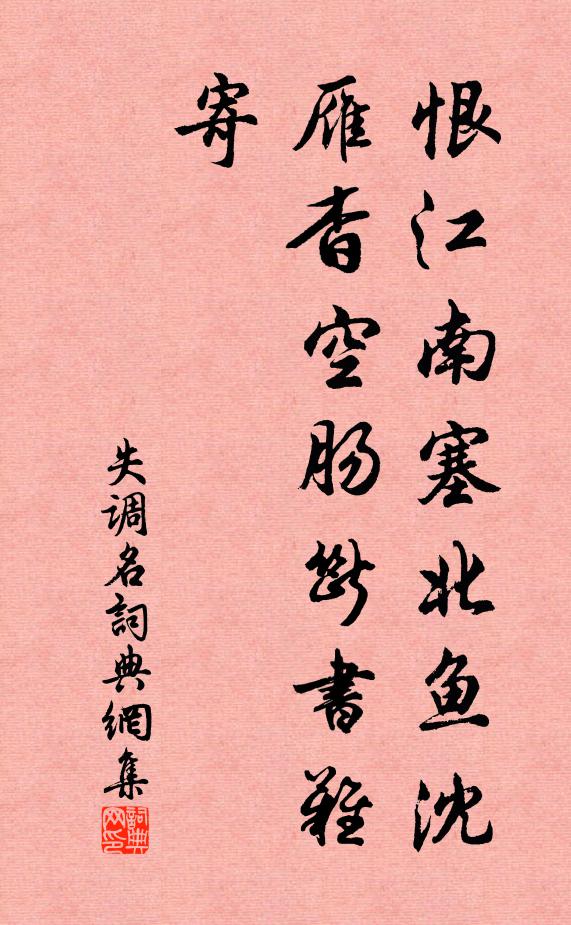 恨江南塞北鱼沈
雁杳空肠断書難
寄
失调名詞典網集
詞典网印